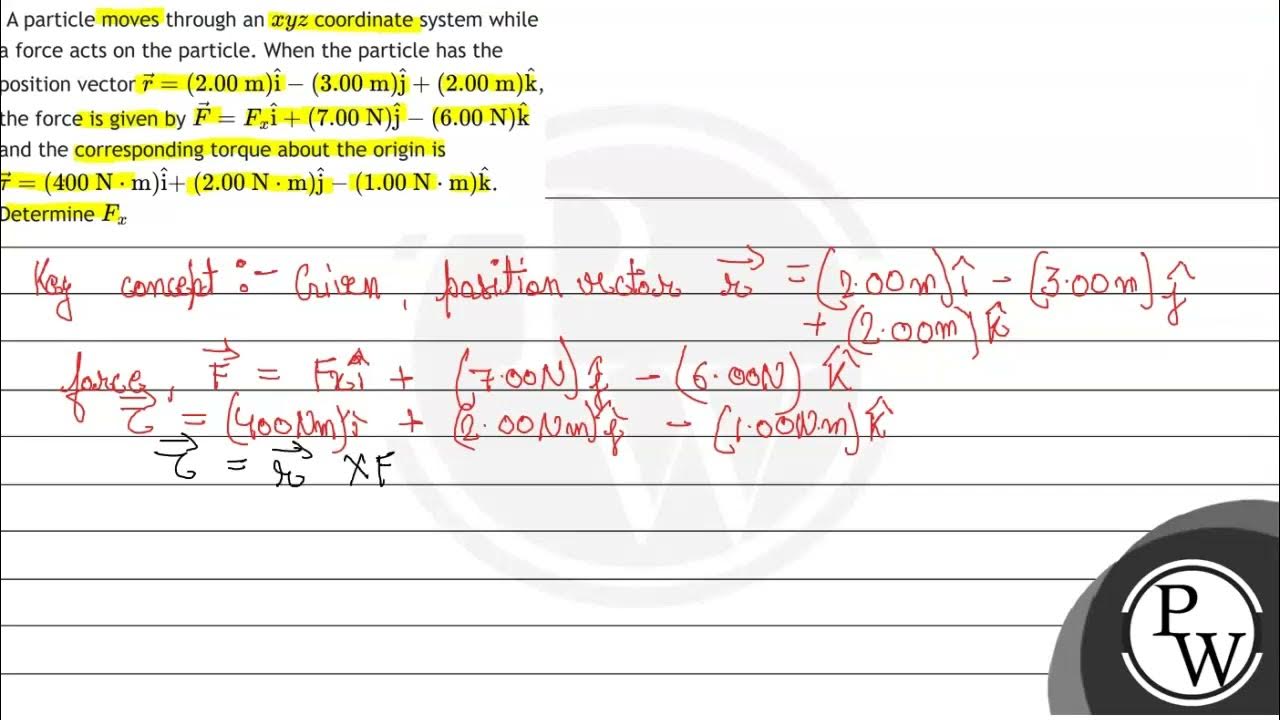 A particle moves through an xyz coordinate system while
a force acts on the particle. When the particle has the
position vector r⃗ = (2.00 m)î − (3.00 m)ĵ + (2.00 m)k̂,
the force is given by F⃗ = Fₓî + (7.00 N)ĵ − (6.00 N)k̂
and the corresponding torque about the origin is
τ⃗ = (400 N · m)î + (2.00 N · m)ĵ − (1.00 N · m)k̂.
Determine Fₓ
Key concept :- Given, position vector r⃗ = (2.00m)î − (3.00m)ĵ
+ (2.00m)k̂
force, F⃗ = Fxî + (7.00N)ĵ − (6.00N) k̂
τ⃗ = (400Nm)î + (2.00Nm)ĵ − (1.00N.m)k̂
τ⃗ = r⃗ XF
PW
PW